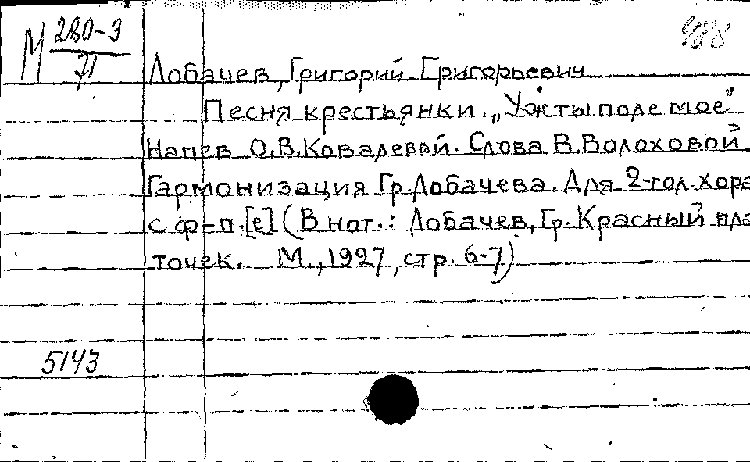 М 280-3
71
Лобачев, Григорий Григорьевич
Песня крестьянки. „Уж ты поле мое"
Напев О.В.Ковалевой. Слова В.Волоховой
Гармонизация Гр.Лобачева. Для 2-гол.хора
с ф-п. [e] (В нот.: Лобачев, Гр. Красный пла
точек. М., 1927, стр. 6-7)
5143